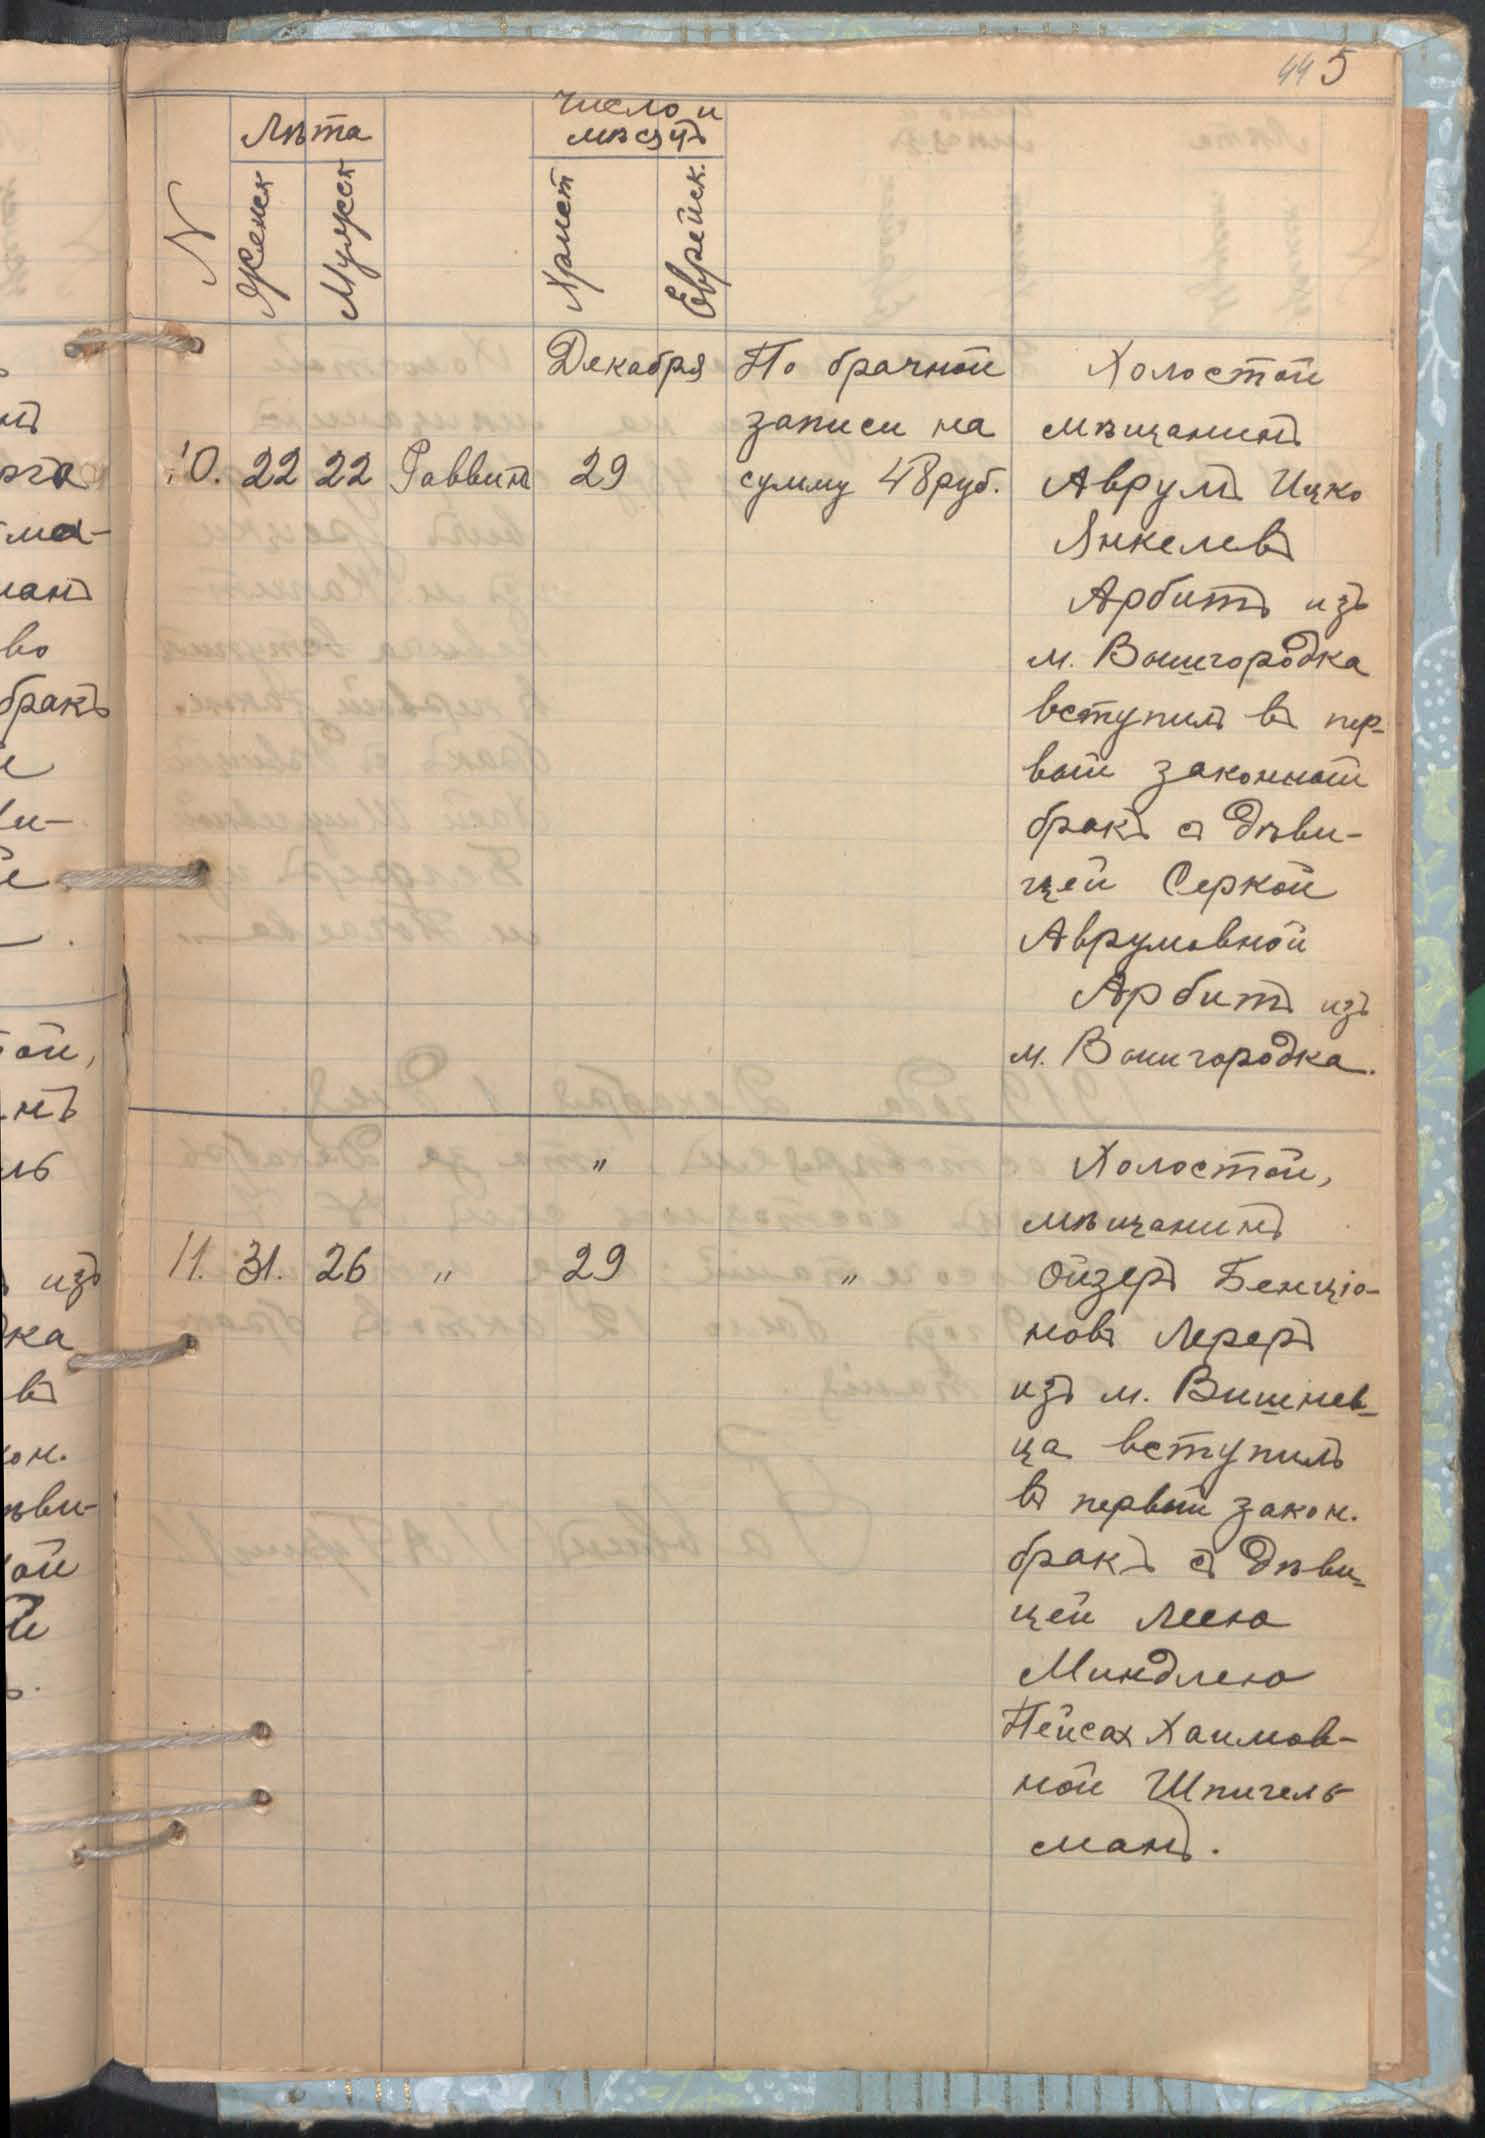 44 5
Лѣта
Число и
мѣсяцъ
N
Женск
Мужск
Христ
Еврейск.
Декабря
По брачной
записи на
10. 22 22 Раввинъ 29 сумму 48 руб.
Холостой
мѣщанинъ
Аврумъ Ицко
Янкелевъ
Арбитъ изъ
м. Вышгородка
вступилъ въ пер-
вый законный
бракъ съ дѣви-
цей Серкой
Аврумовной
Арбитъ изъ
м. Вышгородка.
"
11. 31. 26 " 29 "
Холостой,
мѣщанинъ
Ойзеръ Бенціо-
новъ Лереръ
изъ м. Вишнев-
ца вступилъ
въ первый закон.
бракъ съ дѣви-
цей Леею
Миндлею
Пейсах Хаимов-
ной Шпигель
манъ.